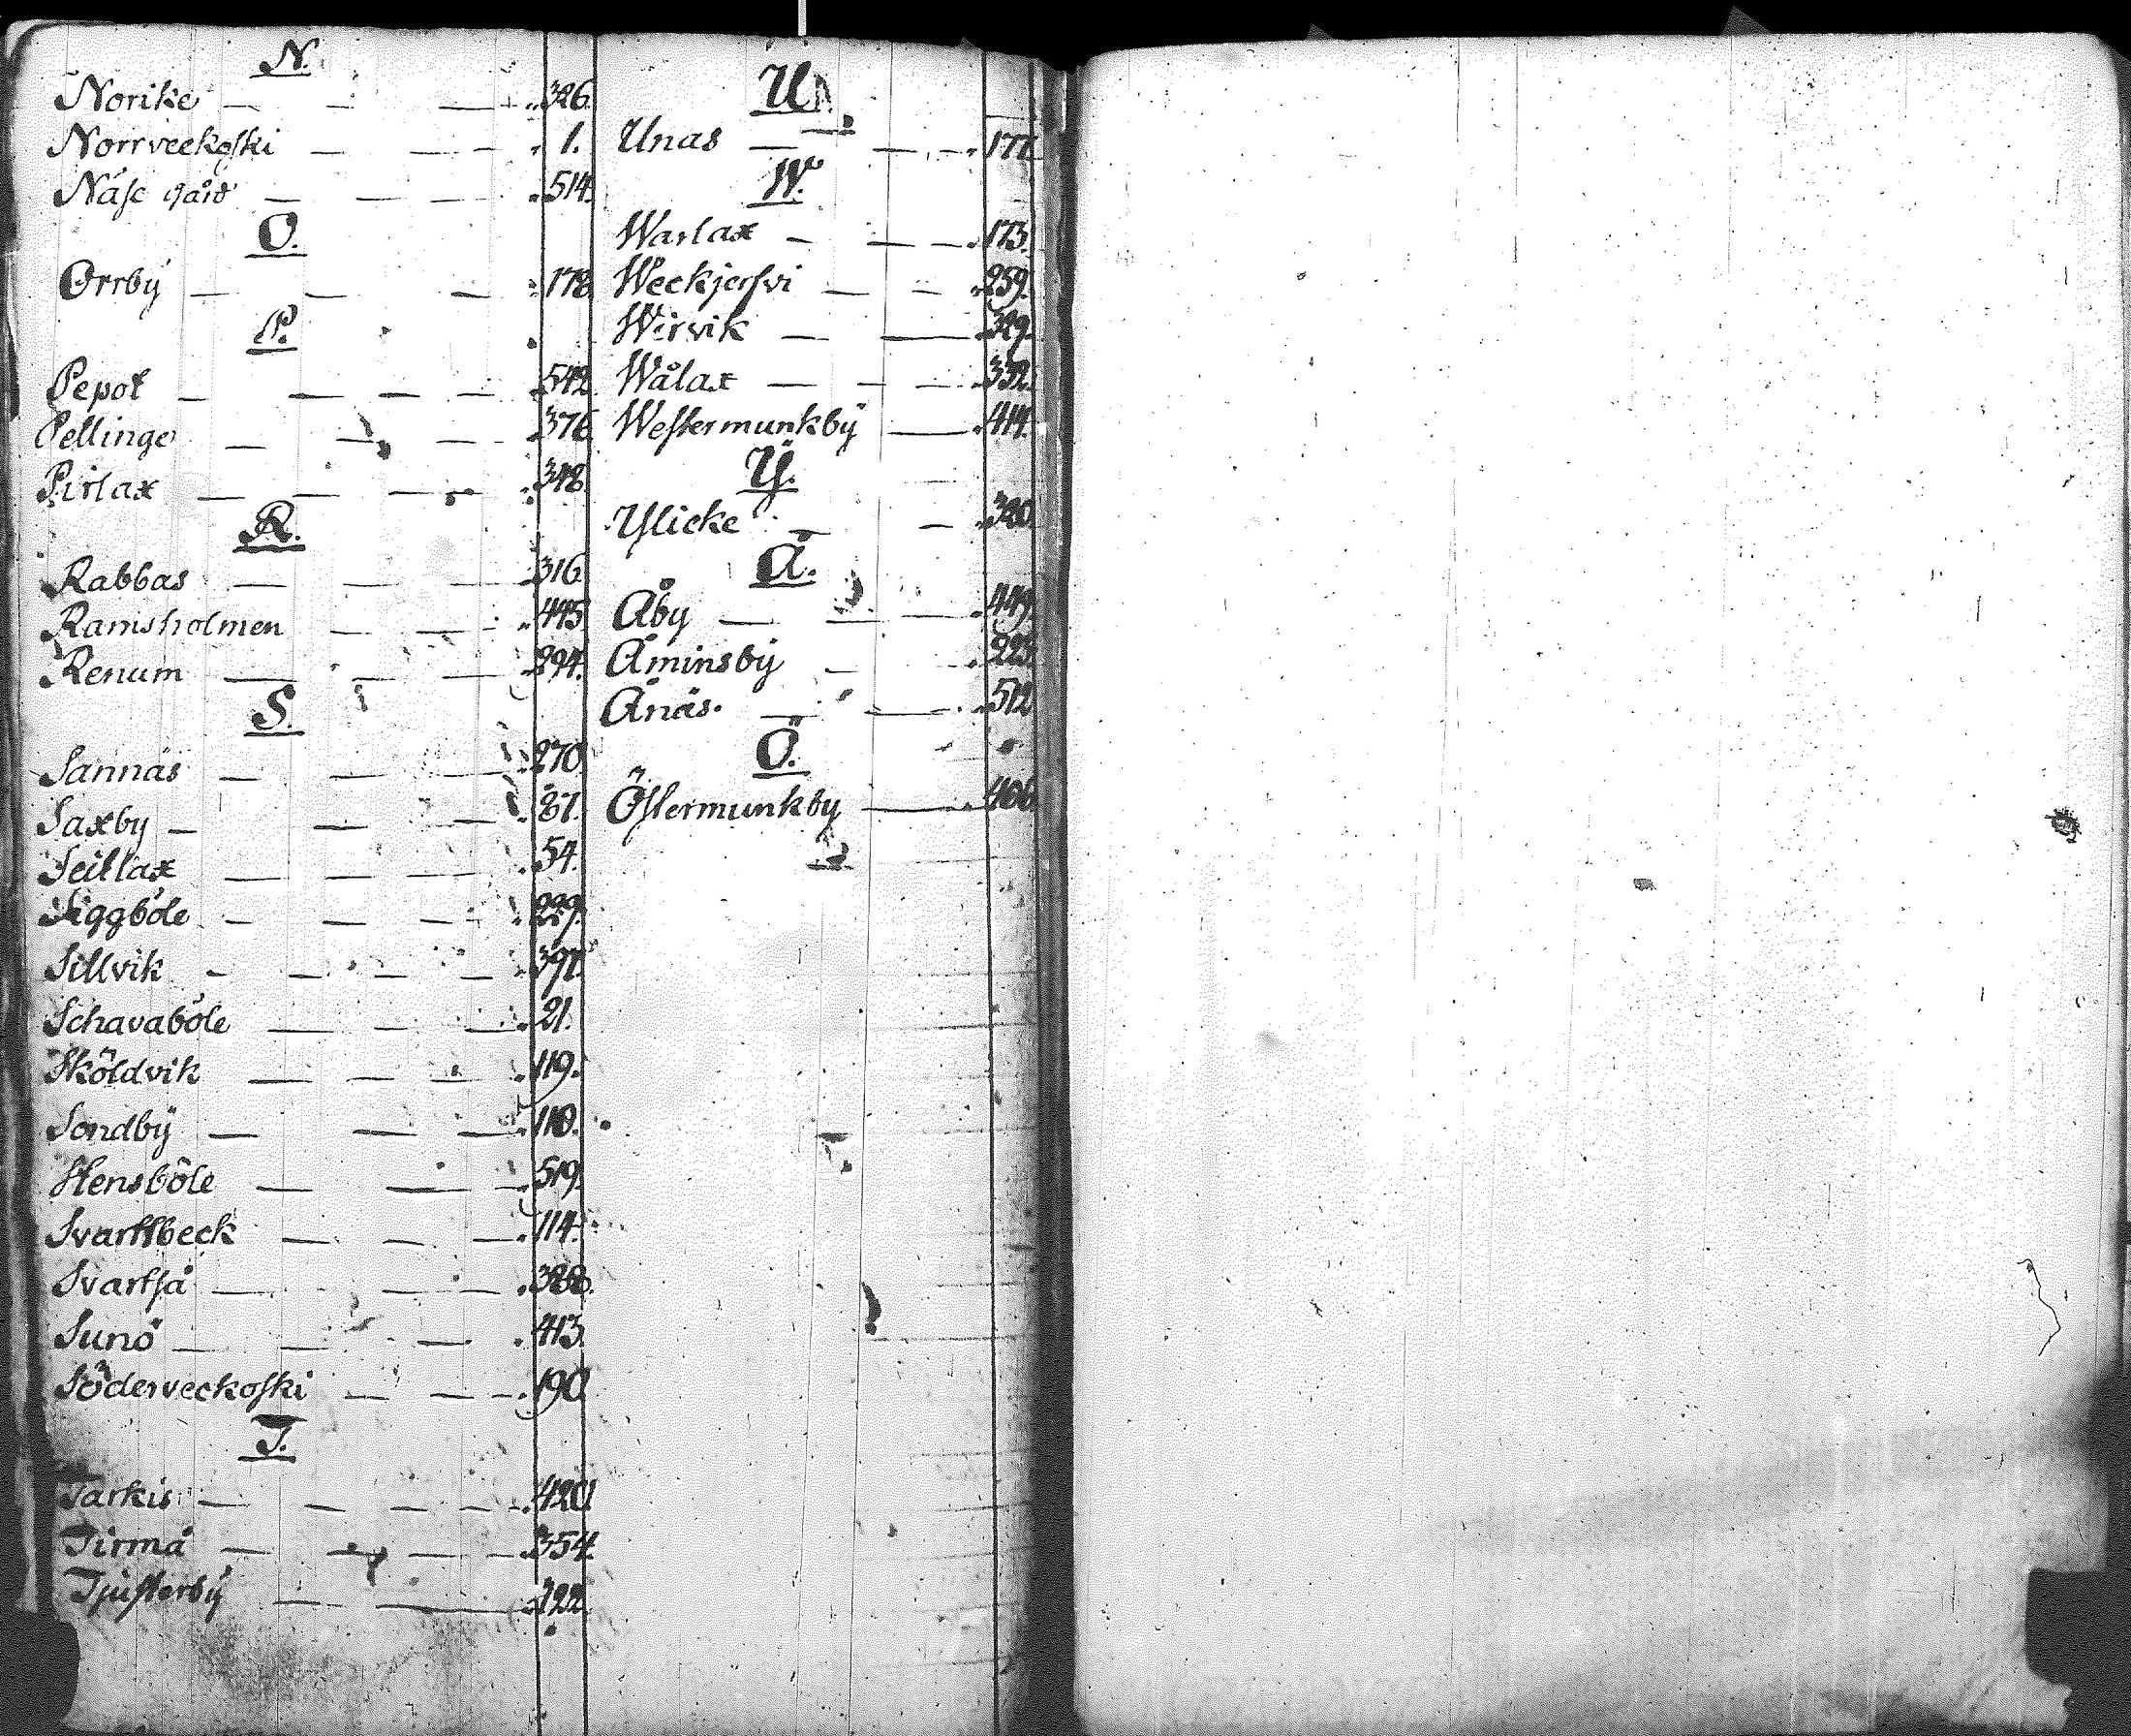 N.
Norike 326.
Norrveckoski 1.
Näse gård 514.
O.
Orrby 178
P.
Pepot 542
Pellinge 376
Pirlax 348.
R.
Rabbas 316
Ramsholmen 445
Renum 294.
S.
Sannäs 270.
Saxby 87.
Seitlax 54.
Siggböle
Sillvik 397.
Schavaböle 21.
Sköldvik 119.
Sondby 110.
Stensböle 519.
Svartsbeck 114.
Svartså 388.
Sunö 413.
Söderveckoski 190
T.
Tarkis 420.
Tirmå 354.
Tjusterby 122
U.
Unas 177.
W.
Warlax 173.
Weckjerfvi 259.
Wirvik 349.
Wålax 332.
Westermunkby 414.
Y.
Ylicke 320.
Å.
Åby 449.
Åminsby 223.
Ånäs. 512
Ö.
Östermunkby 406